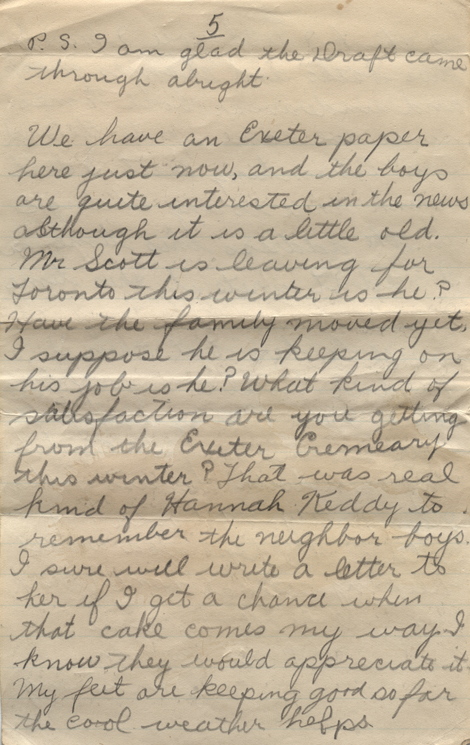 5
P. S. I am glad the Draft came
through alright.
We have an Exeter paper
here just now, and the boys
are quite interested in the news
although it is a little old.
Mr Scott is leaving for
Toronto this winter is he?
Have the family moved yet,
I suppose he is keeping on
his job is he? What kind of
satisfaction are you getting
from the Exeter Cremeary
this winter? That was real
kind of Hannah Keddy to
remember the neighbor boys.
I sure will write a letter to
her if I get a chance when
that cake comes my way. I
know they would appreciate it.
My feet are keeping good so far
the cool weather helps